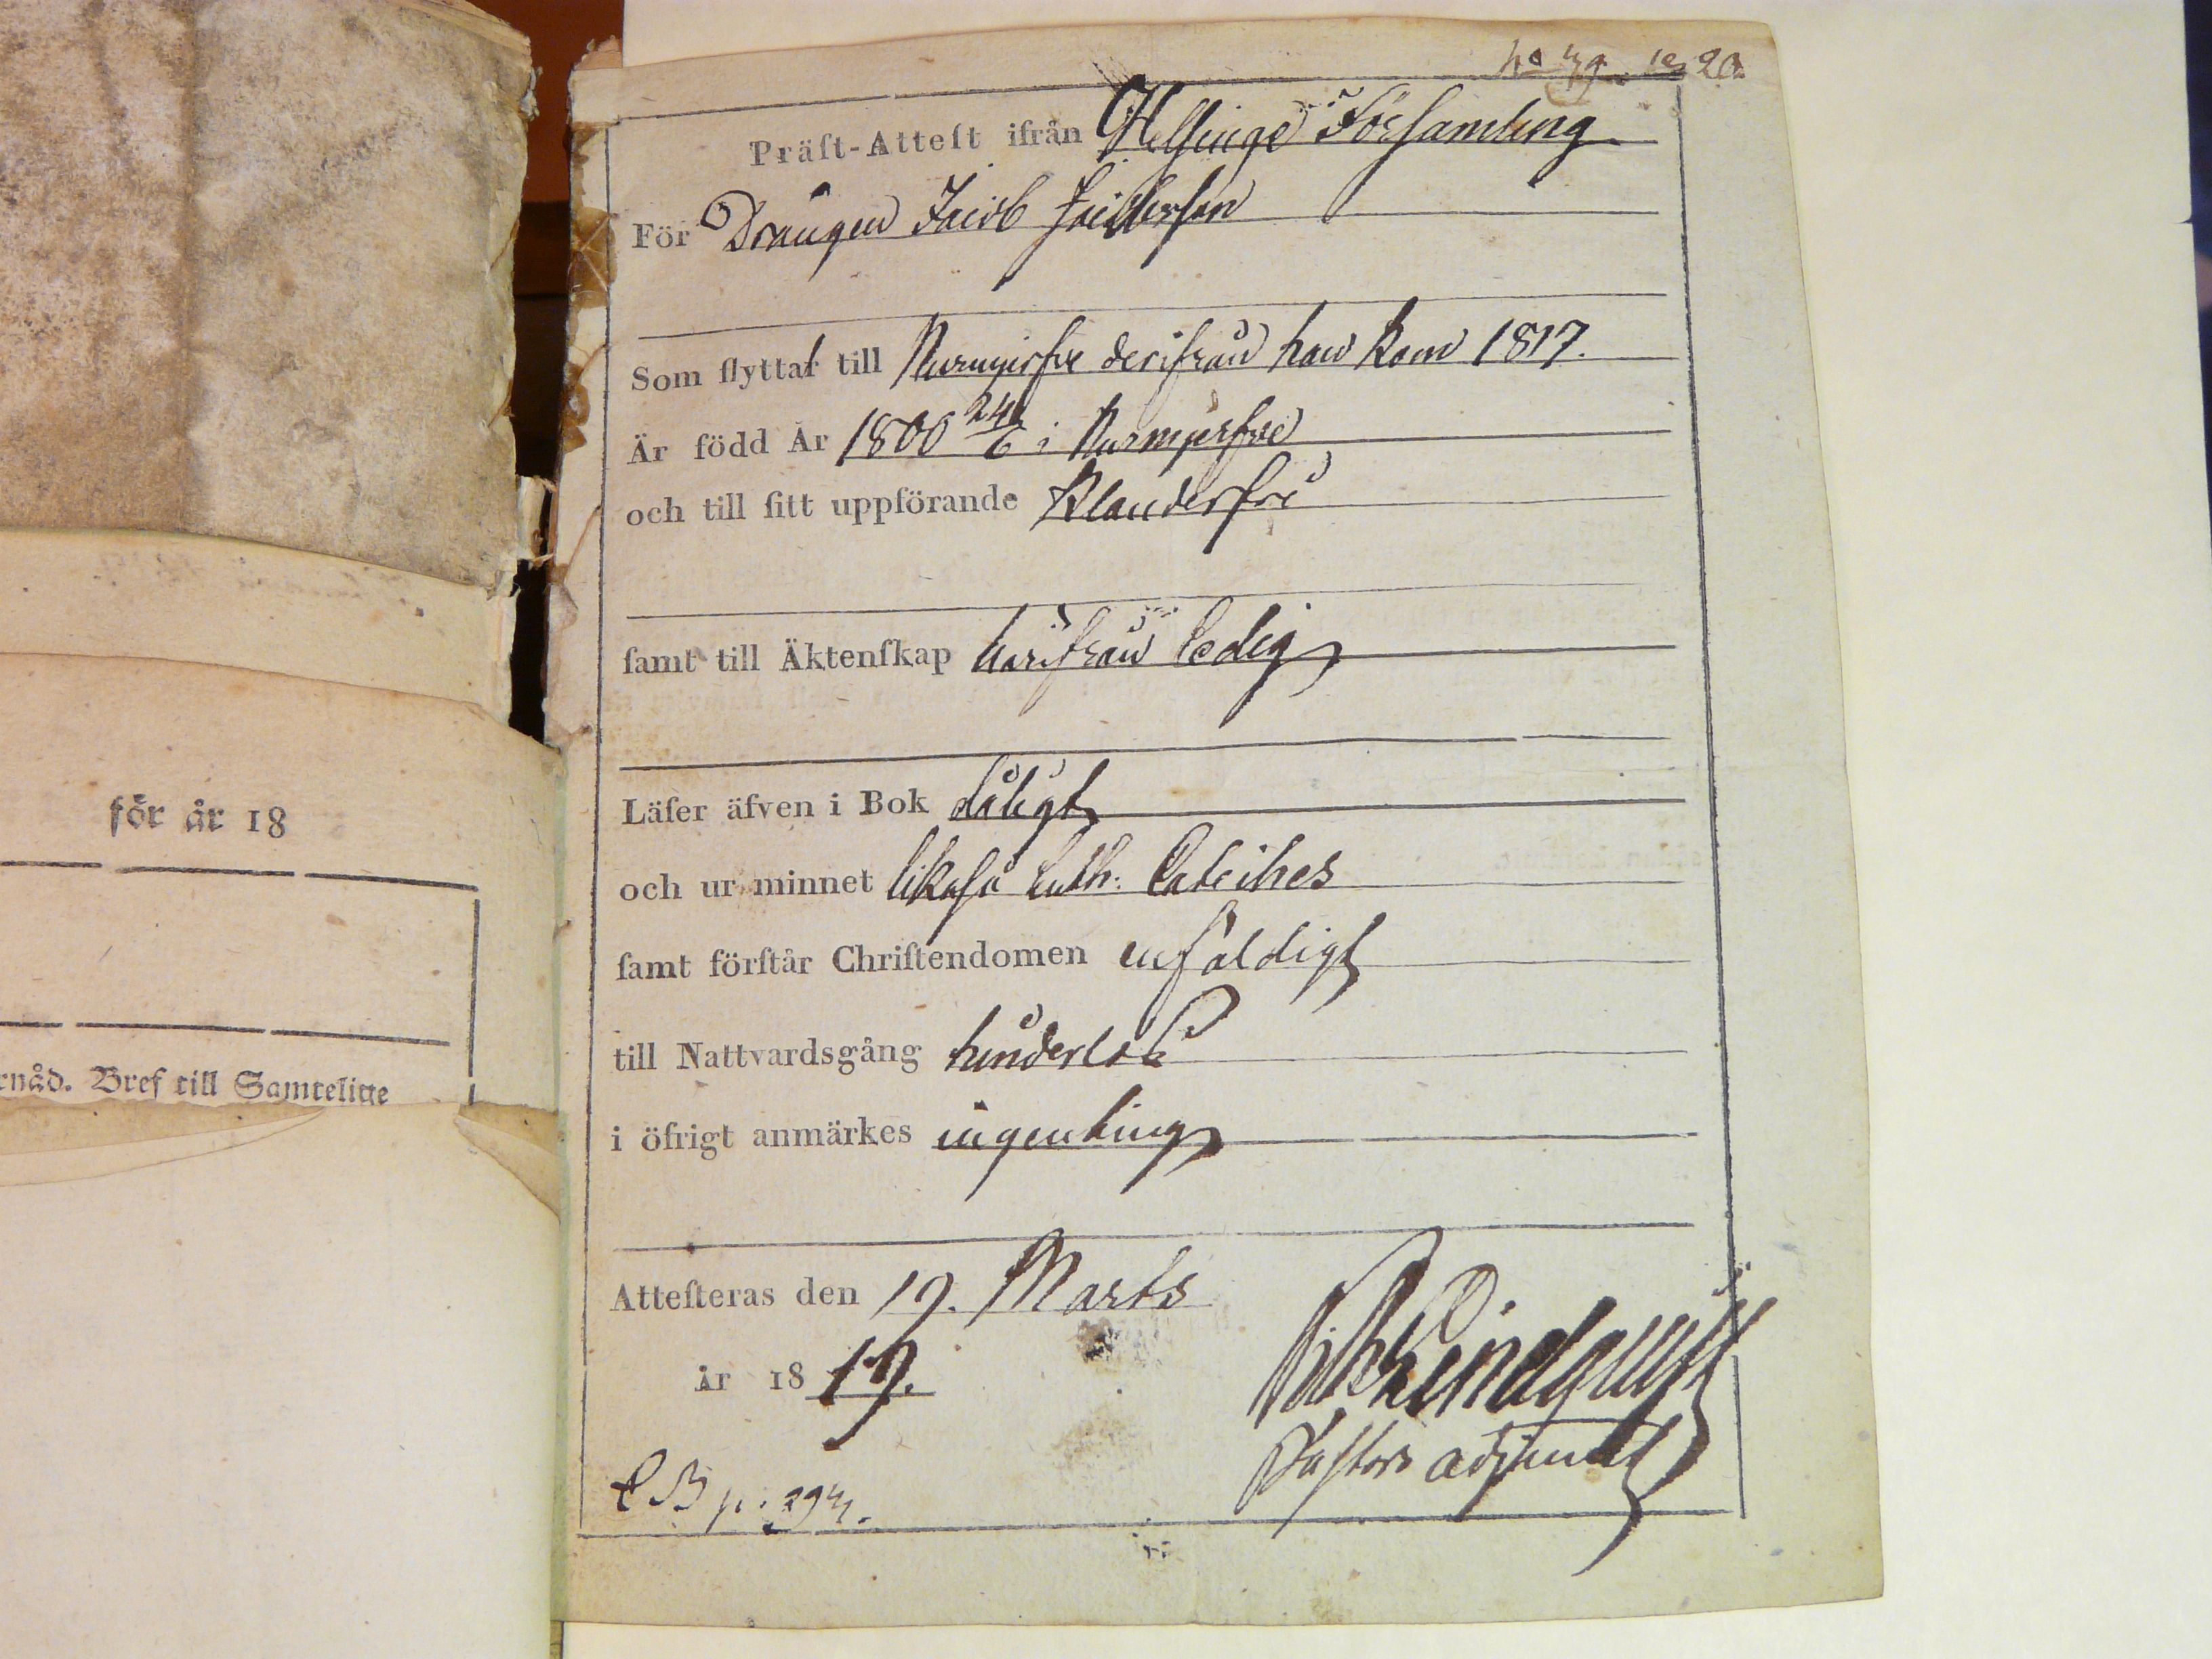 Präſt-Atteſt ifrån Helsinge Församling
För Drängen Jacob Jacobsson
Som flyttat till Nurmijerfve derifrån han kom 1817.
Är född År 1800 24/6 i Nurmijerfve
och till ſitt uppförande Klanderfri
ſamt till Äktenſkap härifrån ledig
Läſer äfven i Bok dåligt
och ur minnet likaså Luth. Cateches
ſamt förſtår Chriſtendomen enfaldigt
till Nattvardsgång hinderlös
i öfrigt anmärkes ingenting
Atteſteras den 19. Marts
år 18 19.
Lindquist
Pastors adjunct
C B p. 294.
för år 18
rnåd. Bref till Samtelige